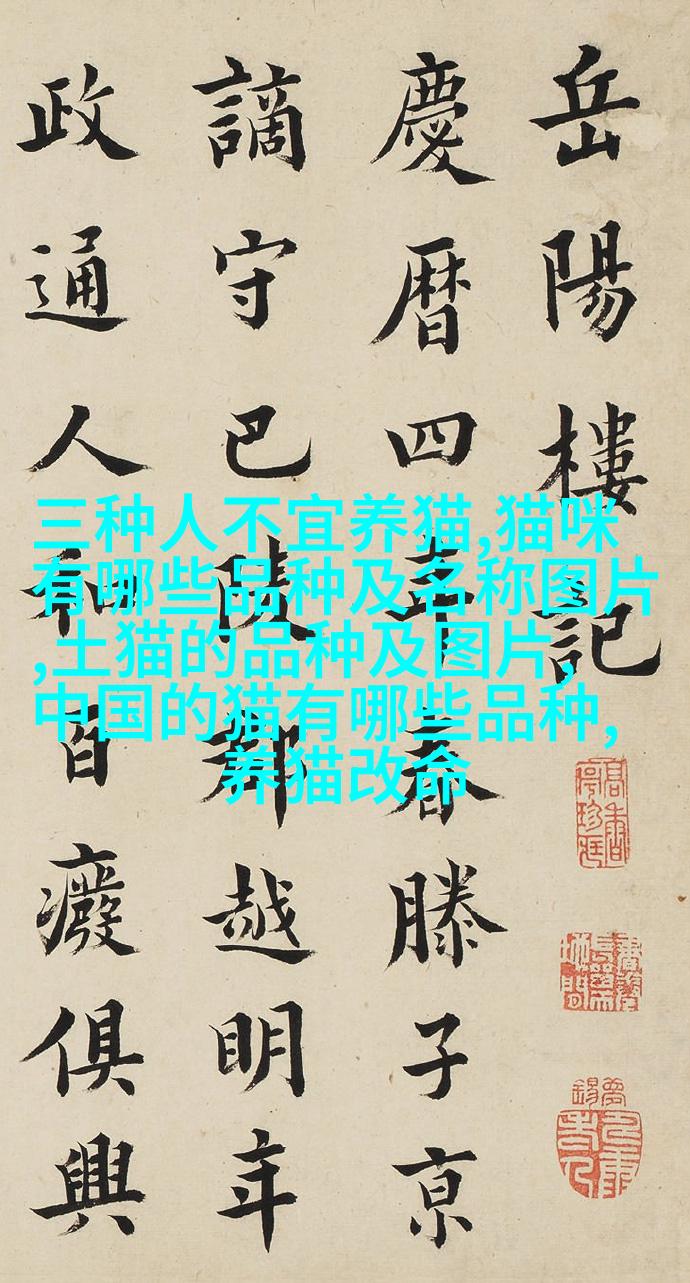 岳陽樓記
慶暦四年春滕子京
謫守巴陵郡越明年
政通人和百癈俱興
三种人不宜养猫,猫咪
有哪些品种及名称图片
,土猫的品种及图片,
中国的猫有哪些品种,
养猫改命